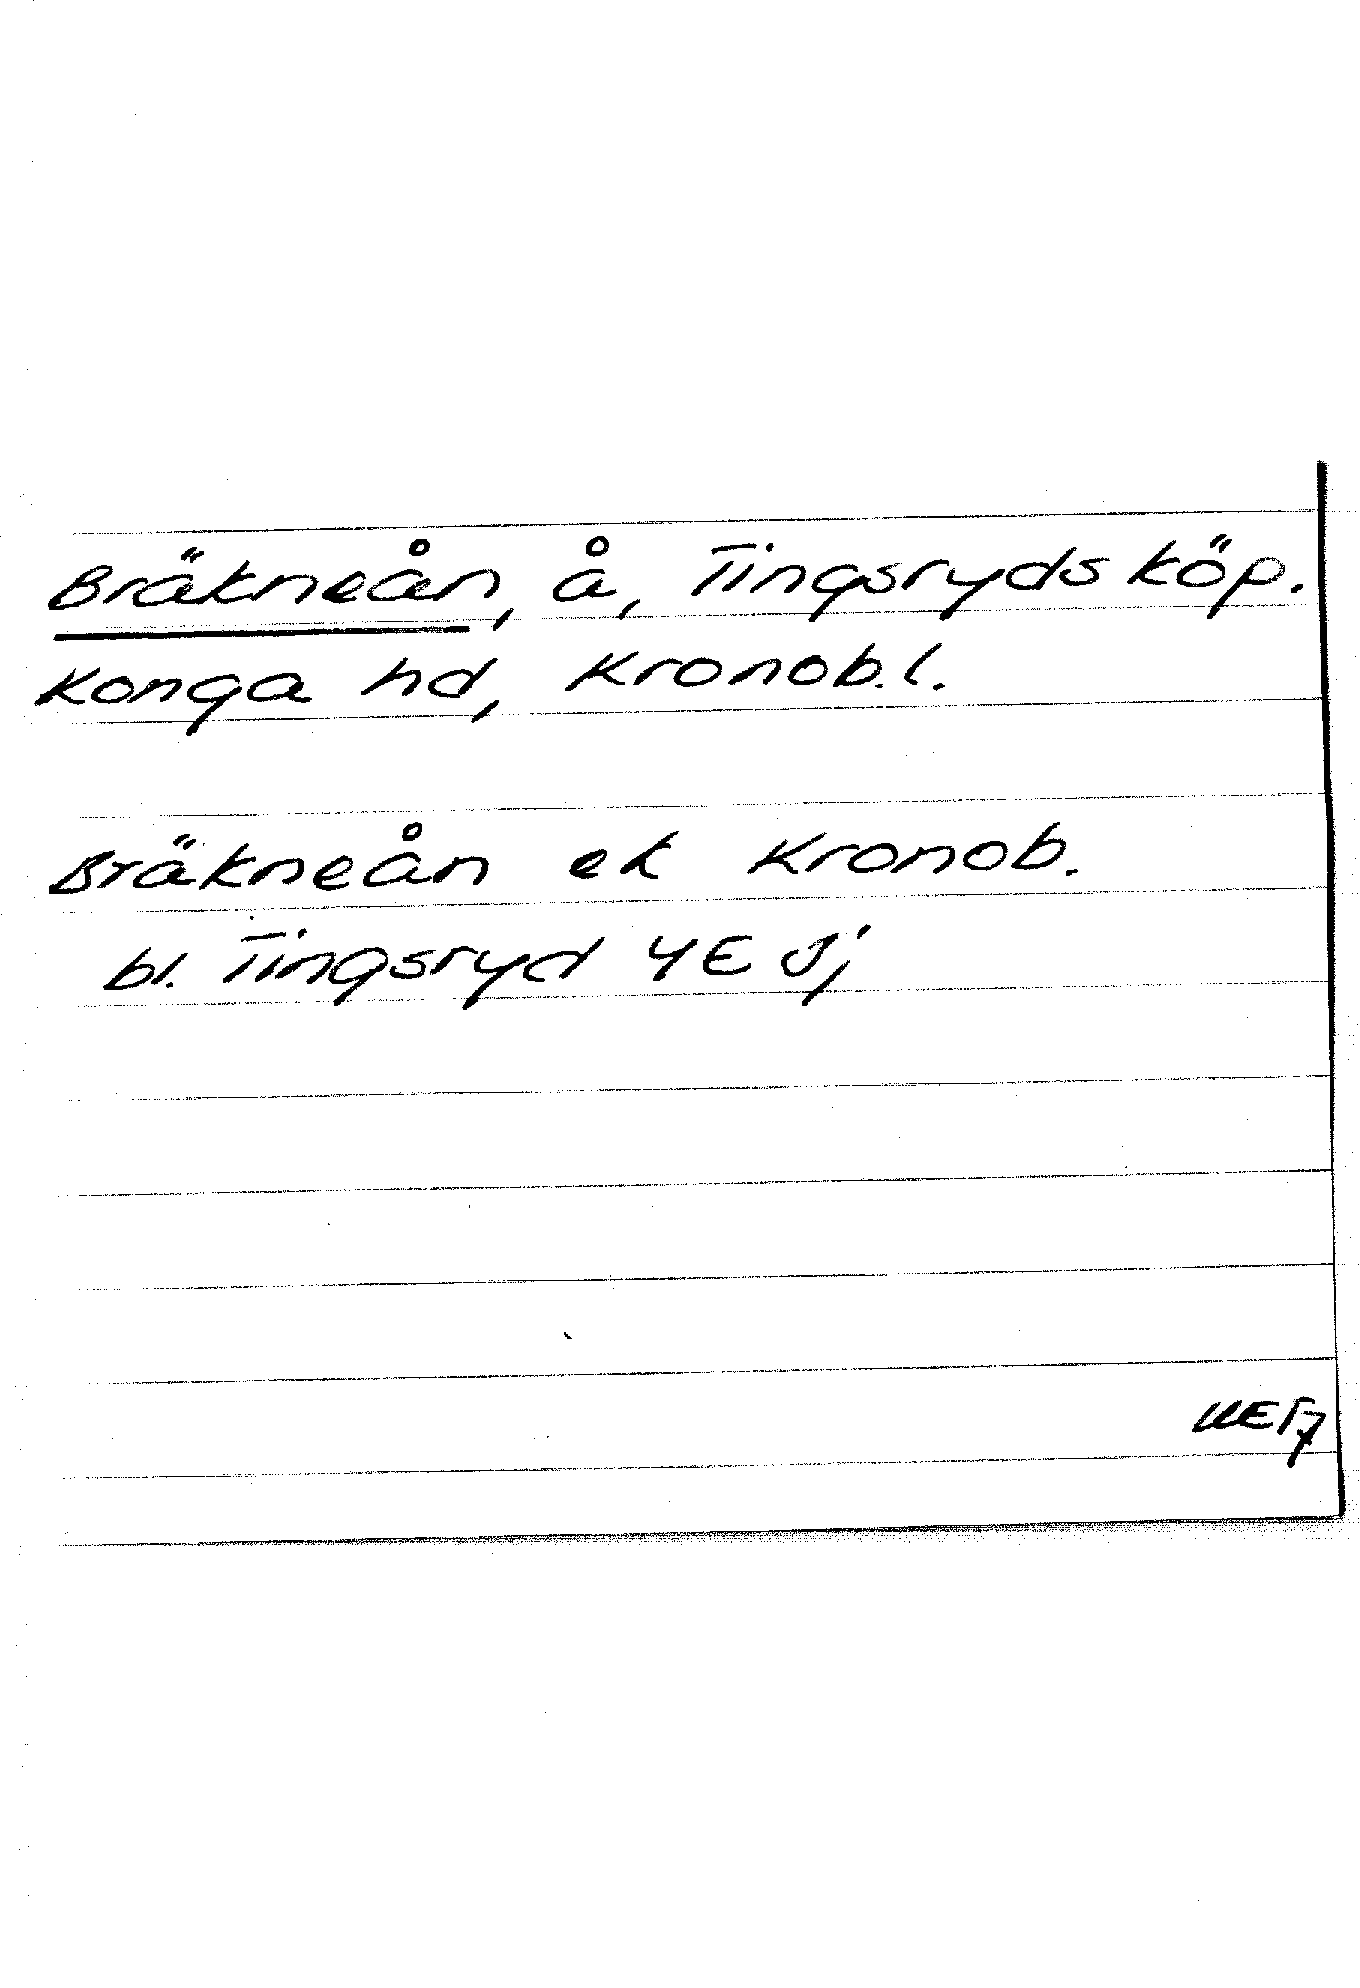 Bräkneån, å, Tingsryds köp.
Konga hd, Kronob. l.
Bräkneån ek Kronob.
bl. Tingsryd 4E Sj